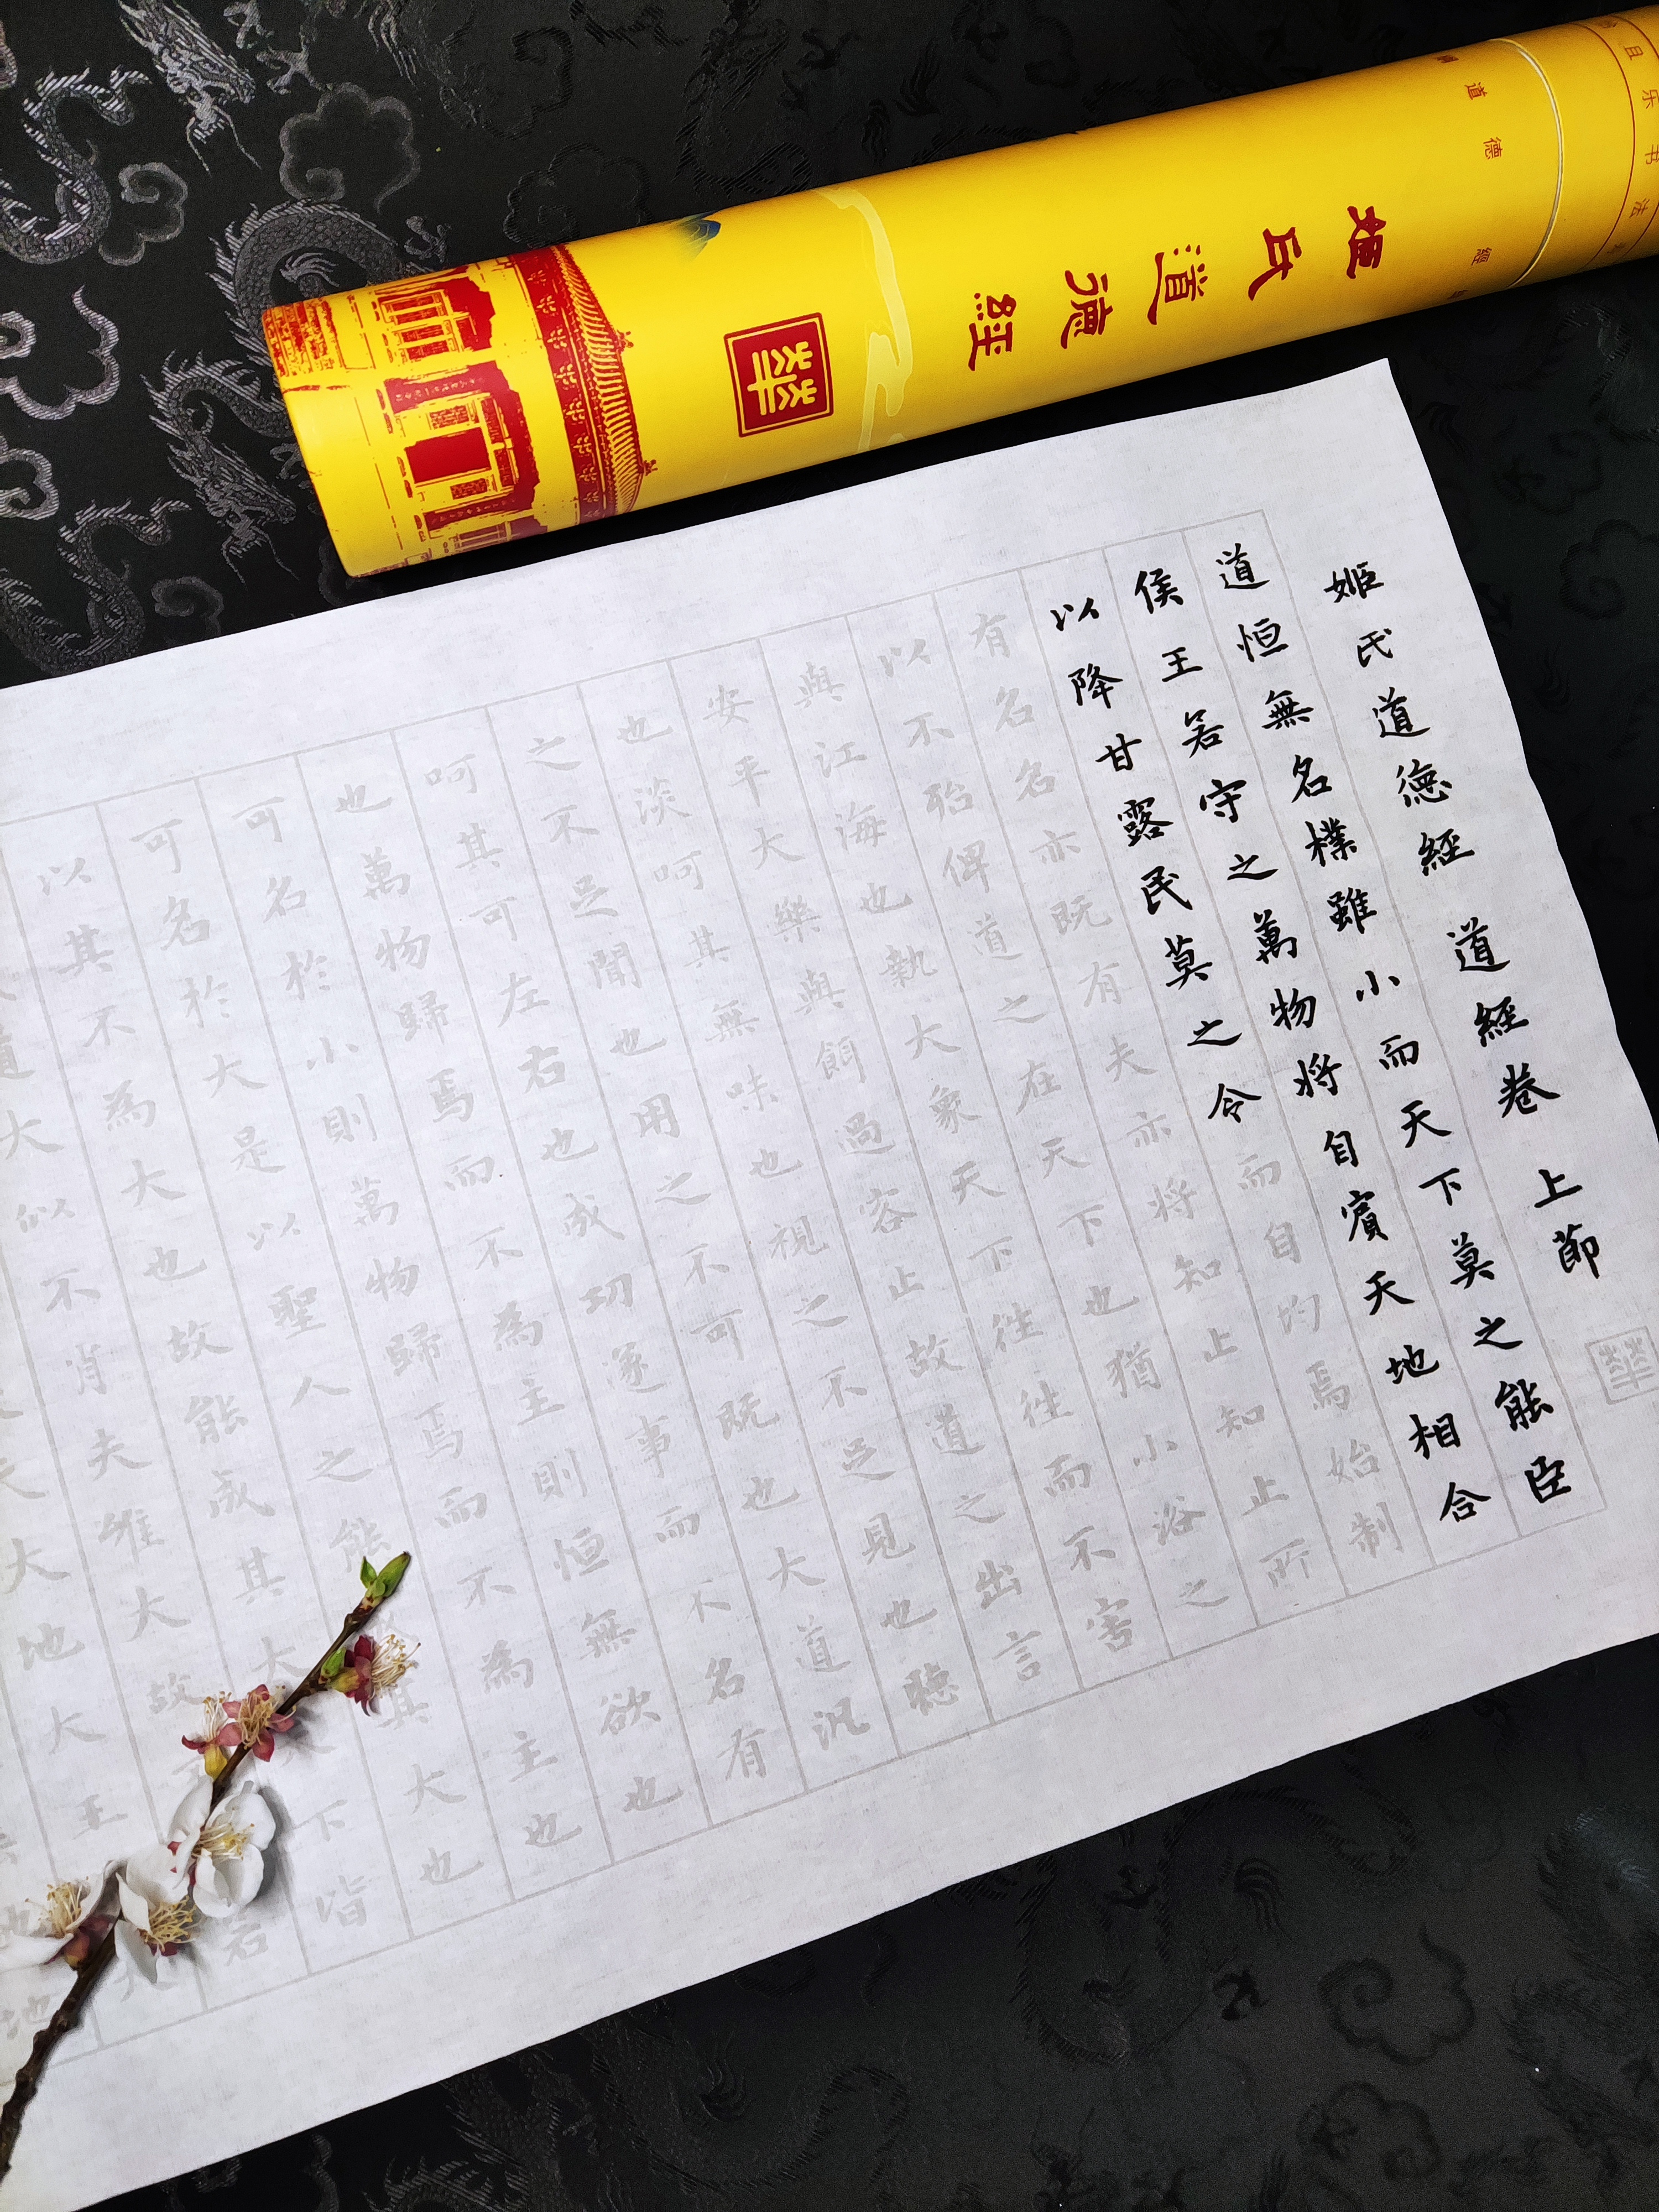 姬氏道德經
華
道德經
且乐书法
姬氏道德經 道經卷 上節
道恒無名樸雖小而天下莫之能臣
侯王若守之萬物將自賓天地相合
以降甘露民莫之令而自均焉始制
有名名亦既有夫亦將知止知止所
以不殆俾道之在天下也猶小浴之
與江海也執大象天下往往而不害
安平大樂與餌過容止故道之出言
也淡呵其無味也視之不足見也聽
之不足聞也用之不可既也大道汎
呵其可左右也成功遂事而不名有
也萬物歸焉而不為主則恒無欲也
可名於小則萬物歸焉而不為主也
可名於大是以聖人之能其大也
以其不為大也故能成其大下皆
道大似不肖夫唯大故若
大大地大王
華